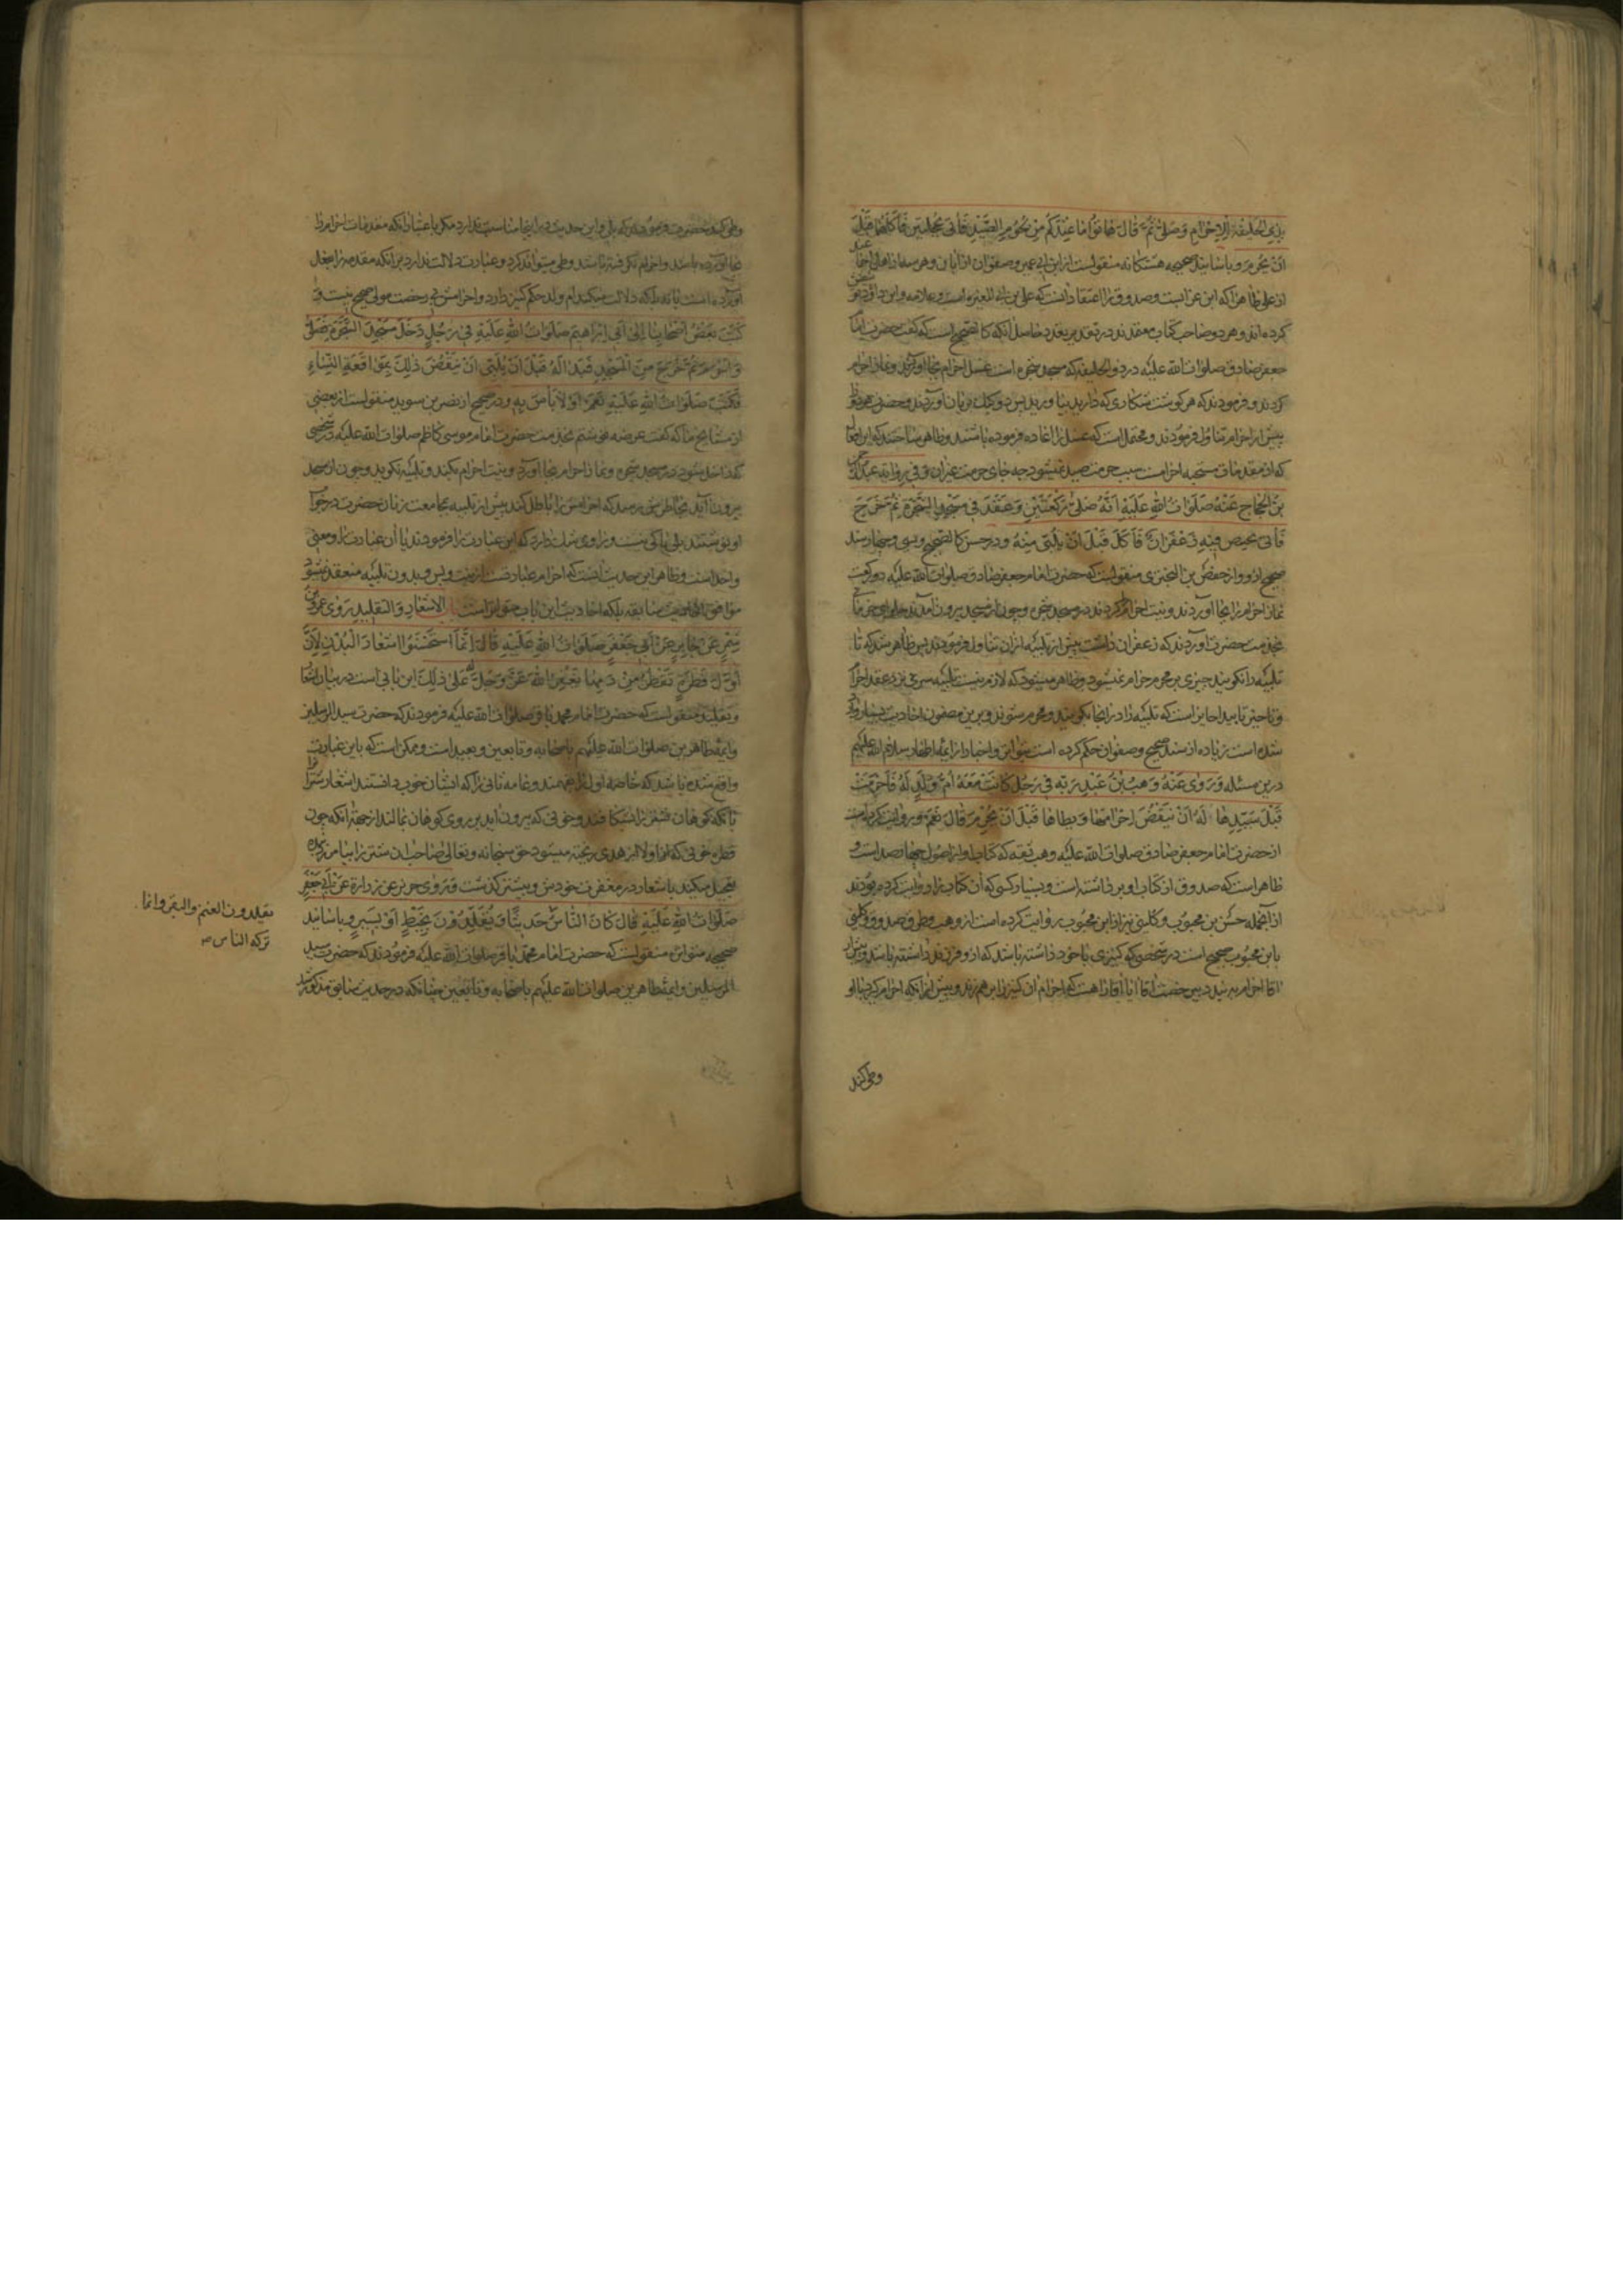 بذي الحليفة للاحرام وصلى ثم قال هاتوا ما عندكم من لحوم الصيد فاتي بحجلتين فاكلهما قبل
ان يحرم و باسانيد صحيحه هشتكانه منقولست از ابن ابي عمير و صفوان از ابان و هر سه از اهل اجماعند
از علي ظاهرا كه ابن عبد العزيز است و صدوق را اعتقاد آنست كه علي بن ابي المغيره است و علامه و ابن داود توثيق
كرده اند و هر دو صاحب كتاب معتمدند در تعدد بر تعدد حاصل آنكه كالصحيح است كه گفت حضرت امام
جعفر صادق صلوات الله عليه در ذو الحليفه كه مسجد شجره است غسل احرام بجا آوردند و نماز احرام
كردند و فرمودند كه هر گوشت شكاري كه داريد بياوريد پس دو كبك بريان آوردند و حضرت هر دو را
پيش از احرام تناول فرمودند و محتمل است كه غسل را اعاده فرموده باشند و ظاهر ساختند كه اين افعال
كه از مقدمات مستحبه احرامست سبب حرمت صيد نميشود چه جاي حرمت غير آن و في رواية عبد الرحمن
بن الحجاج عنه صلوات الله عليه انه صلى ركعتين و عقد في مسجد الشجرة ثم خرج
فاتي بخبيص فيه زعفران فاكل قبل ان يلبي منه و در حسن كالصحيح و بسي و چهار سند
صحيح ازو و از حفص بن البختري منقولست كه حضرت امام جعفر صادق صلوات الله عليه دو ركعت
نماز احرام را بجا آوردند و نيت احرام كردند در مسجد شجره و چون از مسجد بيرون آمدند حلواي خرمائي
بخدمت حضرت آوردند كه زعفران داشت پيش از تلبيه ازان تناول فرمودند پس ظاهر شد كه تا
تلبيه را نگويند چيزي بر محرم حرام نميشود و ظاهر ميشود كه لازم نيست تلبيه سري نزد عقد احرام
و تاخير تا بيدا جايز است كه تلبيه را در انجا بگويند و محرم شوند و برين مضمون احاديث بسيار وارد
شده است زياده از سند صحيح و صفوان حكم كرده است بتواتر و اخبار از ايمه اطهار سلام الله عليهم
درين مسئله و روى عنه وهب بن عبد ربه في رجل كانت معه ام ولد له فاحرمت
قبل سيدها له ان ينقض احرامها و يطاها قبل ان يحرم قال نعم و روايت كرده است
از حضرت امام جعفر صادق صلوات الله عليه وهب ثقه كه كتاب او از اصول چهار صد است و
ظاهر است كه صدوق از كتاب او برداشته است و بسيار كسي كه آن كتاب را روايت كرده بودند
ازانجمله حسن بن محبوب و كليني نيز از ابن محبوب روايت كرده است از وهب و طرق صدوق و كليني
بابن محبوب صحيح است در شخصي كه كنيزي با خود داشته باشد كه ازو فرزند داشته باشد و پيش از
اقا احرام بندد بي رخصت اقا ايا اقا را هست كه احرام ان كنيز را بر هم زند و پيش ازانكه احرام گيرد با او
وطي كند
وطي كند حضرت فرمودند كه بلي و اين حديث در اينجا مناسبت ندارد مگر باعتبار آنكه مقدمات احرام را
بجا آورده باشد و احرام نگرفته باشد وطي ميتواند كرد و عبارت دلالت ندارد بر آنكه مقدمه را بفعل
آورده است يا نه بلكه دلالت ميكند ام ولد حكم كنيز دارد و احرامش بي رخصت مولى صحيح نيست و
كتب بعض اصحابنا الى ابي ابراهيم صلوات الله عليه في رجل دخل مسجد الشجرة فصلى
و احرم ثم خرج من المسجد فبدا له قبل ان يلبي ان ينقض ذلك بمواقعة النساء
فكتب صلوات الله عليه نعم او لا باس به و در صحيح از نضر بن سويد منقولست از بعضي
از مشايخ ما كه گفت عرضه نوشتم بخدمت حضرت امام موسى كاظم صلوات الله عليه در شخصي
كه داخل شود در مسجد شجره و نماز احرام بجا آورد و نيت احرام بكند و تلبيه نگويد و چون از مسجد
بيرون آيد بخاطرش رسد كه احرامش را باطل كند پيش از تلبيه بمجامعت زنان حضرت در جواب
او نوشتند بلي باكي نيست و راوي شك دارد كه اين عبارت را فرمودند يا آن عبارت را و معني
واحد است و ظاهر اين حديث آنست كه احرام عبارتست از نيت و بس و بدون تلبيه منعقد ميشود
موافق احاديث سابقه بلكه احاديث اين باب متواتر است باب الاشعار و التقليد روى عمرو بن
شمر عن جابر عن ابي جعفر صلوات الله عليه قال انما استحسنوا اشعار البدن لان
اول قطرة تقطر من دمها يغفر الله عز و جل له على ذلك اين بابي است در بيان اشعار
و تقليد منقول است كه حضرت امام محمد باقر صلوات الله عليه فرمودند كه حضرت سيد المرسلين
و ايمه طاهرين صلوات الله عليهم با صحابه و تابعين و بعيد است و ممكن است كه باين عبارت
واقع شده باشد كه خاصه اول را فهمند و عامه ثاني را كه ايشان خوب دانستند اشعار شتر را
بانكه كوهان شتر را بشكافند و خوني كه بيرون ايد بر روي كوهان بمالند از جهة آنكه چون
قطره خوني كه از اولا از هدي ريخته ميشود حق سبحانه و تعالى صاحب ان شتر را بيامرزد پس
تعجيل ميكند باشعار در مغفرت خودش و پيشتر گذشت و روى حريز عن زرارة عن ابي جعفر
صلوات الله عليه قال كان الناس حديثا و يقلدون بخيط او بسير و باسانيد
صحيحه متواتره منقولست كه حضرت امام محمد باقر صلوات الله عليه فرمودند كه حضرت سيد
المرسلين و ايمه طاهرين صلوات الله عليهم با صحابه و تابعين چنانكه در حديث سابق مذكور شد
يقلدون الغنم والبقر وانما
تركه الناس صح